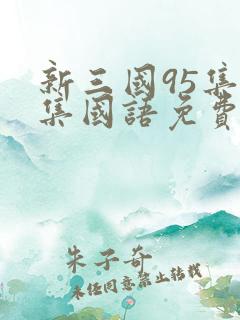 新三國95集
集國語免費
朱子奇
未经同意禁止转载